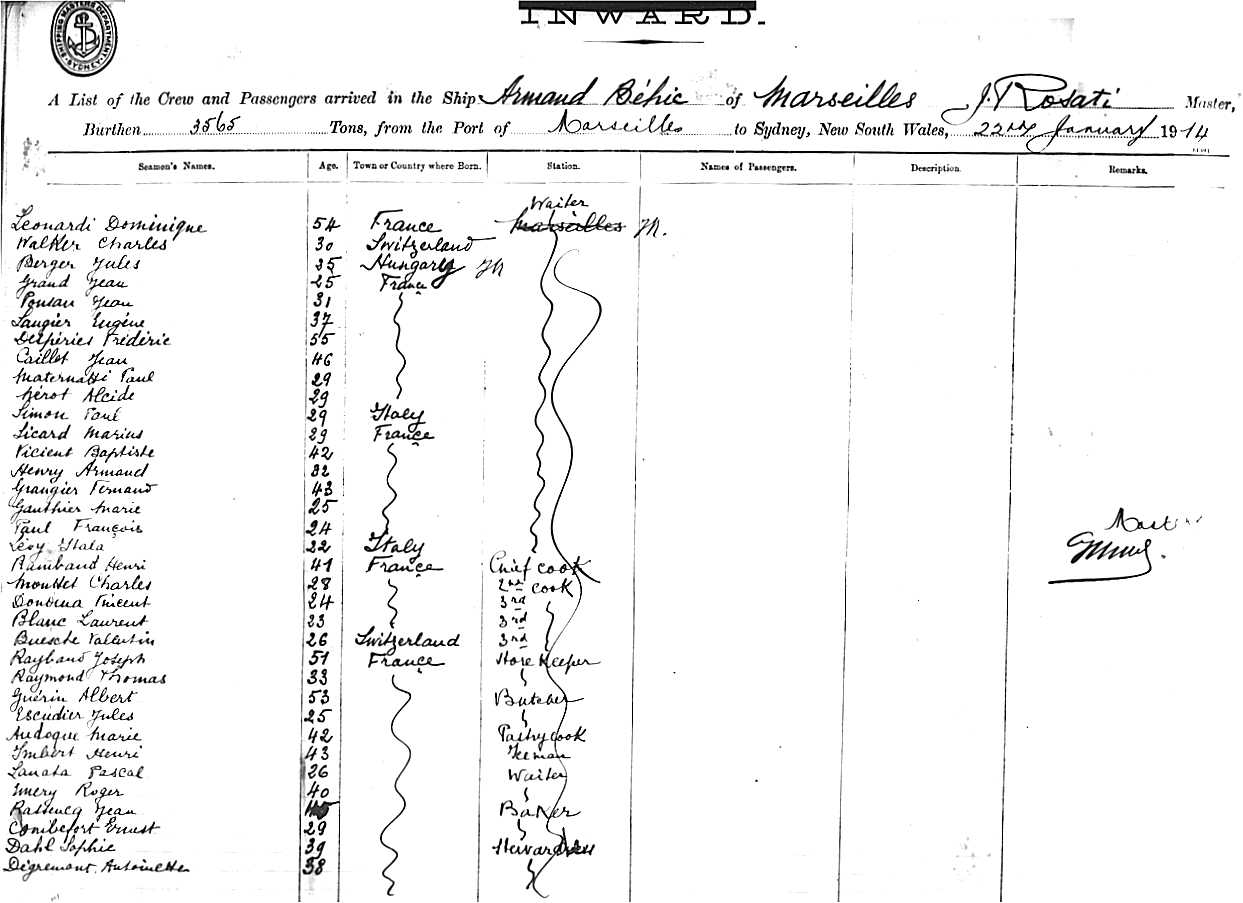 SHIPPING MASTERS DEPARTMENT SYDNEY
INWARD.
A List of the Crew and Passengers arrived in the Ship Armand Béhic of Marseilles J. Rosati Master,
Burthen 3565 Tons, from the Port of Marseilles to Sydney, New South Wales, 22nd January 1914
Seamen's Names. Age. Town or Country where Born. Station. Names of Passengers. Description. Remarks.
Waiter
Leonardi Dominique 54 France Marseilles M.
Walker Charles 30 Switzerland
Berger Jules 25 Hungary M
Grand Jean 25 France
Ponsan Jean 31
Laugier Eugène 37
Despéries Frédéric 55
Caillot Jean 46
Maternatti Paul 29
Mérot Alcide 29
Simon Paul 29 Italy
Sicard Marius 29 France
Vicient Baptiste 42
Henry Armand 32
Grangier Fernand 43
Gauthier Marie 25
Paul François 24
Lévy Itala 22 Italy
Rambaud Henri 41 France Chief cook
Mousset Charles 28 2nd cook
Dondina Vincent 24 3rd
Blanc Laurent 23 3rd
Buesche Valentin 26 Switzerland 3rd
Raybaud Joseph 51 France Store Keeper
Raymond Thomas 33
Guérin Albert 53 Butcher
Escudier Jules 25
Audogue Marie 42 Pastrycook
Imbert Henri 43
Lanata Pascal 26 Waiter
Emery Roger 40
Jean Baker
Combefort Ernest 29
Dahl Sophie 39 Stewardess
Degremont Antoinette 38